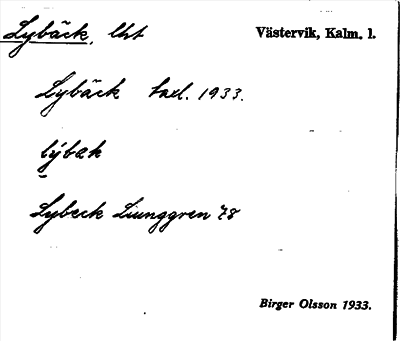 Lybäck, lht Västervik, Kalm. l.
Lybäck tael. 1933.
lýbæk
Lybeck Liunggren 78
Birger Olsson 1933.